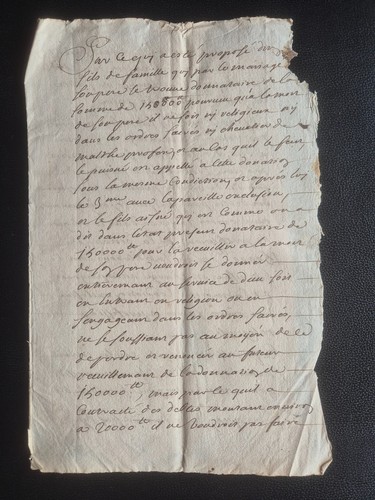 Sur ce qui a esté proposé du
fils de famille qui par le mariage
son pere le trouve donnataire de la
somme de 150000 pourveu qu'a la mort
de son pere il ne fois ny religieux ny
dans les ordres sacrés ny chevalier de
malthe profex, et au cas quil le feut
le puisné est appellé a cette donation
sous la mesme Condission, et apres luy
le 3me avec la pareille exclusion,
or le fils aisné qui est comme on a
dit dans l'estat presux donataire de
150000tt pour la receuillir a la mort
de son pere voudrois se donner
entierement au service de dieu soit
en Entrant en religion ou en
s'engageant dans les ordres sacrés,
ne se souffrant pas au moyen de ce
de perdre et renoncer au futeur
receuillement de la donnation de
150000tt, mais parce quil a
Contracté des debtes montant environ
a 20000tt il ne voudrois pas faire